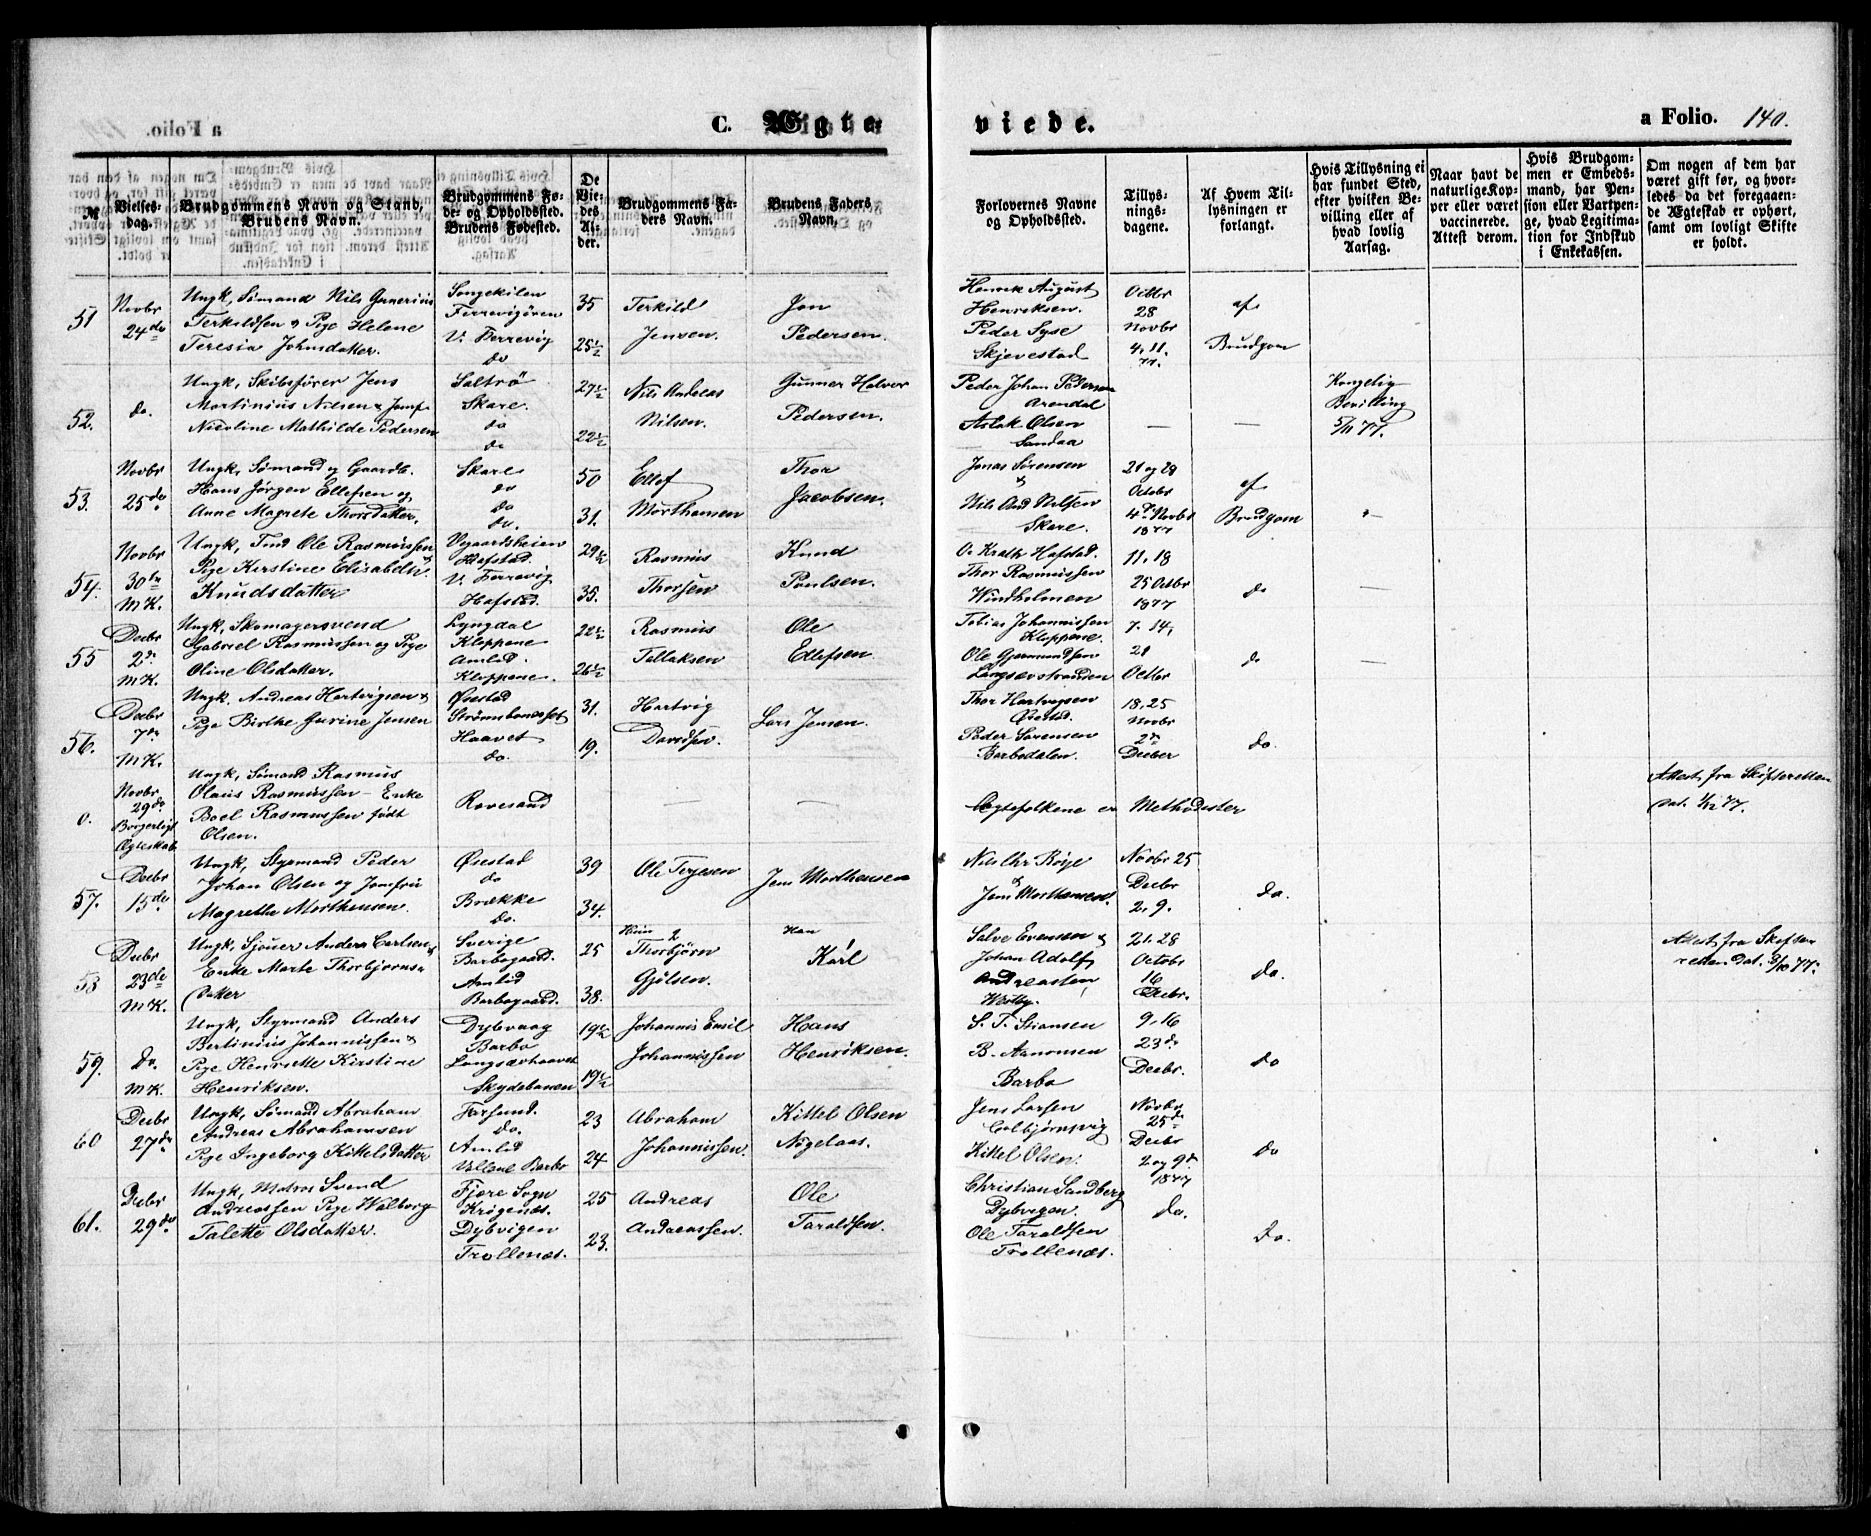 C. Ægteviede. a Folio. 140.
№
Vielsesdag.
Brudgommens Navn og Stand, Brudens Navn.
Brudgommens Føde- og Opholdssted. Brudens Fødested.
De Viedes Alder.
Brudgommens Faders Navn.
Brudens Faders Navn.
Forlovernes Navne og Opholdssted.
Tillysningsdagene.
Af Hvem Tillysningen er forlangt.
Hvis Tillysning ei har fundet Sted, efter hvilken Bevilling eller af hvad lovlig Aarsag.
Naar havt de naturlige Kopper eller været vaccinerede. Attest derom.
Hvis Brudgommen er Embedsmand, har Pension eller Vartpenge, hvad Legitimation for Indskud i Enkekassen.
Om nogen af dem har været gift før, og hvorledes da det foregaaende Ægteskab er ophørt, samt om lovligt Skifte er holdt.
51 Novbr 24de
Ungk, Sømand Nils Gunerius
Terkildsen & Pige Helene
Teresia Johnsdatter.
Songekilen
V. Færrevig
do
35
25½
Terkild
Jensen.
Jon
Pedersen.
Henrik August
Henriksen.
Peder Syse
Skjevestad
Octbr
28
Novbr
4. 11.
77.
af
Brudgom
52. do.
Ungk, Skibsfører Jens
Martinius Nilsen & Jomf.
Nicoline Mathilde Pedersen
Saltrø
Skare.
do
do
27½
22½
Nils Andreas
Nilsen.
Gunner Halvor
Pedersen.
Peder Johan Pedersen
Arendal
Aslak Olsen
Sandaa
—
—
Kongelig
Bevilling
5/11 77.
53. Novbr 25de
Ungk, Sømand og Gaardb.
Hans Jørgen Ellefsen og
Anne Magrete Thorsdatter.
Skare
do
do
do.
50
31.
Ellef
Morthensen
Thor
Jacobsen.
Jonas Sørensen
&
Nils And Nilsen
Skare.
21 og 28
October
4de Novbr
1877
af
Brudgom
—
54. Novbr 30te M.K.
Ungk, Ole Rasmussen &
Pige Kirstine Elisabeth
Knudsdatter
Vegaardsheien
Hafstad.
V. Færrevig
Hafstad.
29½
35.
Rasmus
Thorsen
Knud
Poulsen.
O. Hafstad.
Thor Rasmussen
Windholmen
11. 18
25 Octbr
1877
do
—
55 Decbr 2de M.K.
Ungk, Skomagersvend
Gabriel Rasmussen og Pige
Oline Olsdatter.
Lyngdal
Kloppene
Amlid.
Kloppene.
22½
26½
Rasmus
Tellaksen
Ole
Ellefsen
Tobias Johannissen
Kloppene.
Ole Gjermundsen
Langsævstranden
7. 14,
21
Octbr
do
—
56. Decbr 7de M.K.
Ungk. Andreas Hartvigsen &
Pige Birthe Gurine Jensen
Øiestad
Haavet
do.
31.
19.
Hartvig
Davidsen.
Lars Jensen.
Thor Hartvigsen
Øiestad.
Peder Sørensen
Barbodalen.
18. 25
Novbr
2den
Decbr
do.
0. Novbr 29de Borgerligt Ægteskab
Ungk, Sømand Rasmus
Olaus Rasmussen – Enke
Boel Rasmussen født
Olsen.
Ravesand
—
—
Ægtefolkene er Methodister
Attest fra Skifteretten
dat. 1/12 77.
57. Decbr 15de
Ungk, Styrmand Peder
Johan Olsen og Jomfru
Magrethe Morthensen.
Øiestad
do
Brække
do.
39
34.
Ole Terjesen
Jens Morthensen
Nils Chr Bøye
&
Jens Morthensen.
Novbr 25
Decbr
2. 9.
do.
58 Decbr 23de M.K.
Ungk, Sjouer Anders Carlsen &
Enke Marte Thorbjørns-
datter
Sverige
Barbogaard.
Amlid
Barbogaard.
25
38.
Hun 2
Thorbjørn
Gjølsen.
Han
Karl
Salve Evensen &
Johan Adolf
Andreasten
21. 28
October
16
Decbr.
do.
Attest fra Skifte-
retten dat. 3/10 77.
59. do. M.K.
Ungk, Styrmand Anders
Bertinius Johannissen &
Pige Henriette Kirstine
Henriksen.
Dybvaag
Barbo
Langsævhaavet
Skydebanen
19½
19½
Johannis Emil
Johannissen
Hans
Henriksen.
S. T. Stiansen
B. Aanonsen
Barbo
9. 16
23de
Decbr.
do
60 Decbr 27de
Ungk, Sømand Abraham
Andreas Abrahamsen
Pige Ingeborg Kittelsdatter
Farsund.
do.
Amlid
Vellene Barbo
23
24
Abraham
Johannissen.
Kittel Olsen
Nøgelaas.
Jens Larsen
Colbjørnsvig
Kittel Olsen.
Novbr
25de
Decbr
2 og 9de
1877
do
61. Decbr 29de
Ungk, Matros Svend
Andreassen Pige Walborg
Talette Olsdatter.
Fjære Sogn
Krøgenæs.
Dybvigen
Trollenæs.
25
23.
Andreas
Andreassen.
Ole
Taraldsen.
Christian Sandberg
Dybvigen.
Ole Taraldsen
Trollenæs.
do.
do.